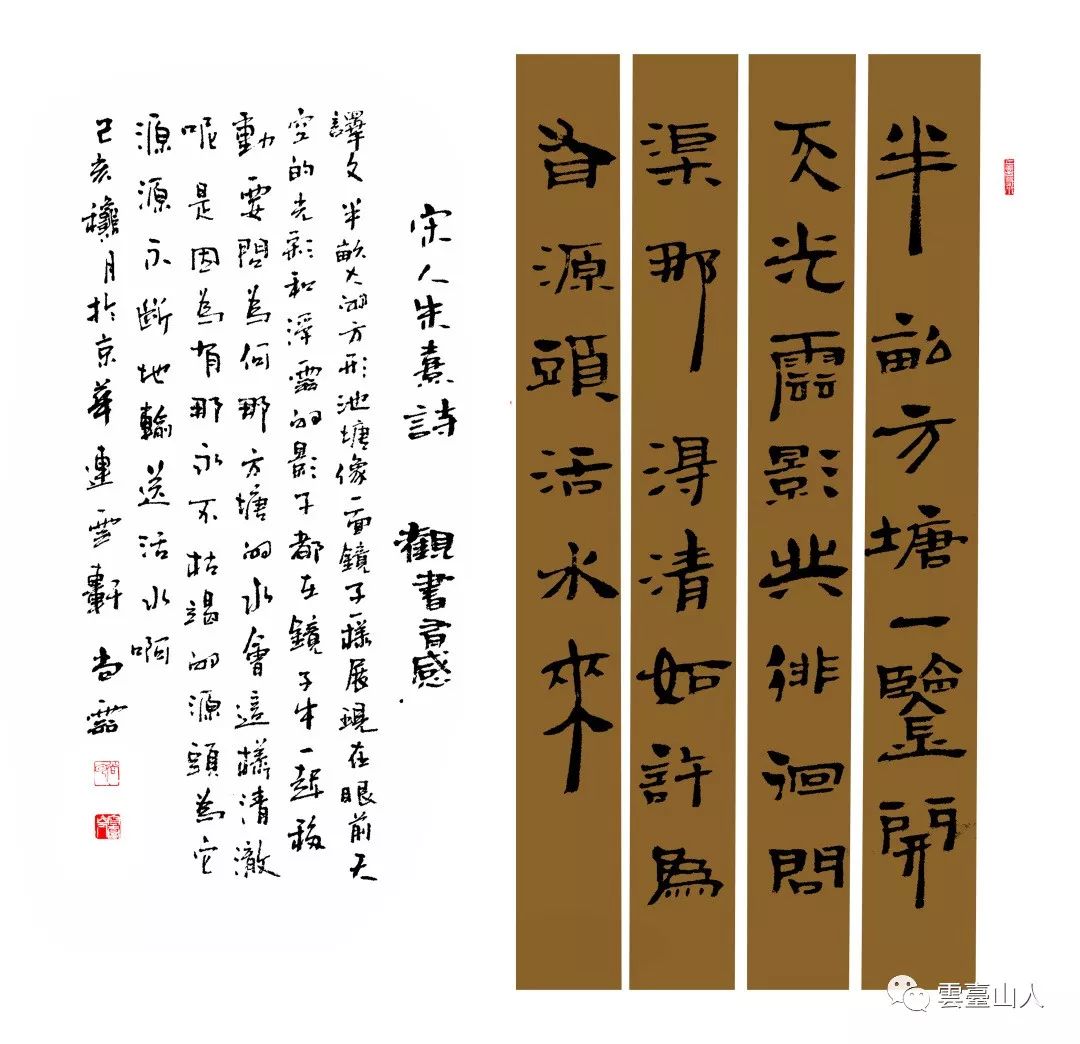 半畝方塘一鑒開
天光雲影共徘徊問
渠那得清如許為
有源頭活水來
宋人朱熹詩 觀書有感
譯文 半畝大的方形池塘像一面鏡子一樣展現在眼前天
空的光彩和浮雲的影子都在鏡子中一起移
動要問為何那方塘的水會這樣清澈
呢是因為有那永不枯竭的源頭為它
源源不斷地輸送活水啊
己亥穐月於京華連雲軒 尚雲
雲臺山人